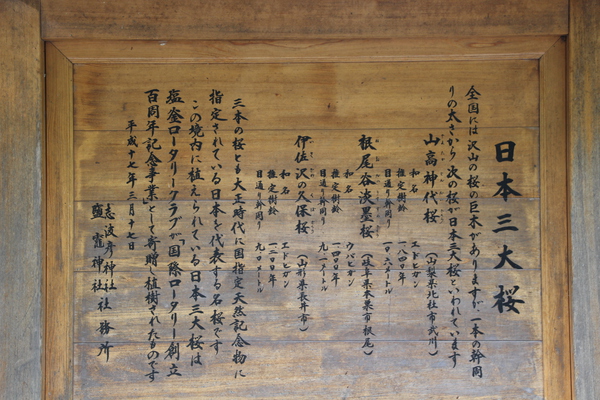 日本三大桜
全国には沢山の桜の巨木がありますが一本の幹囲
りの太さから次の桜が日本三大桜といわれています
山高神代桜
(山梨県北杜市武川)
和名 エドヒガン
推定樹齢 一八〇〇年
目通り幹周り 一〇・六メートル
根尾谷淡墨桜
(岐阜県本巣市根尾)
和名 ウバヒガン
推定樹齢 一四〇〇年
目通り幹周り 九・一メートル
伊佐沢の久保桜
(山形県長井市)
和名 エドヒガン
推定樹齢 一二〇〇年
目通り幹周り 九・〇メートル
三本の桜とも大正時代に国指定天然記念物に
指定されている日本を代表する名桜です
この境内に植えられている日本三大桜は
塩釜ロータリークラブが「国際ロータリー創立
百周年記念事業として寄贈し植樹されたものです
平成十七年三月十七日
志波彦神社
鹽竈神社 社務所